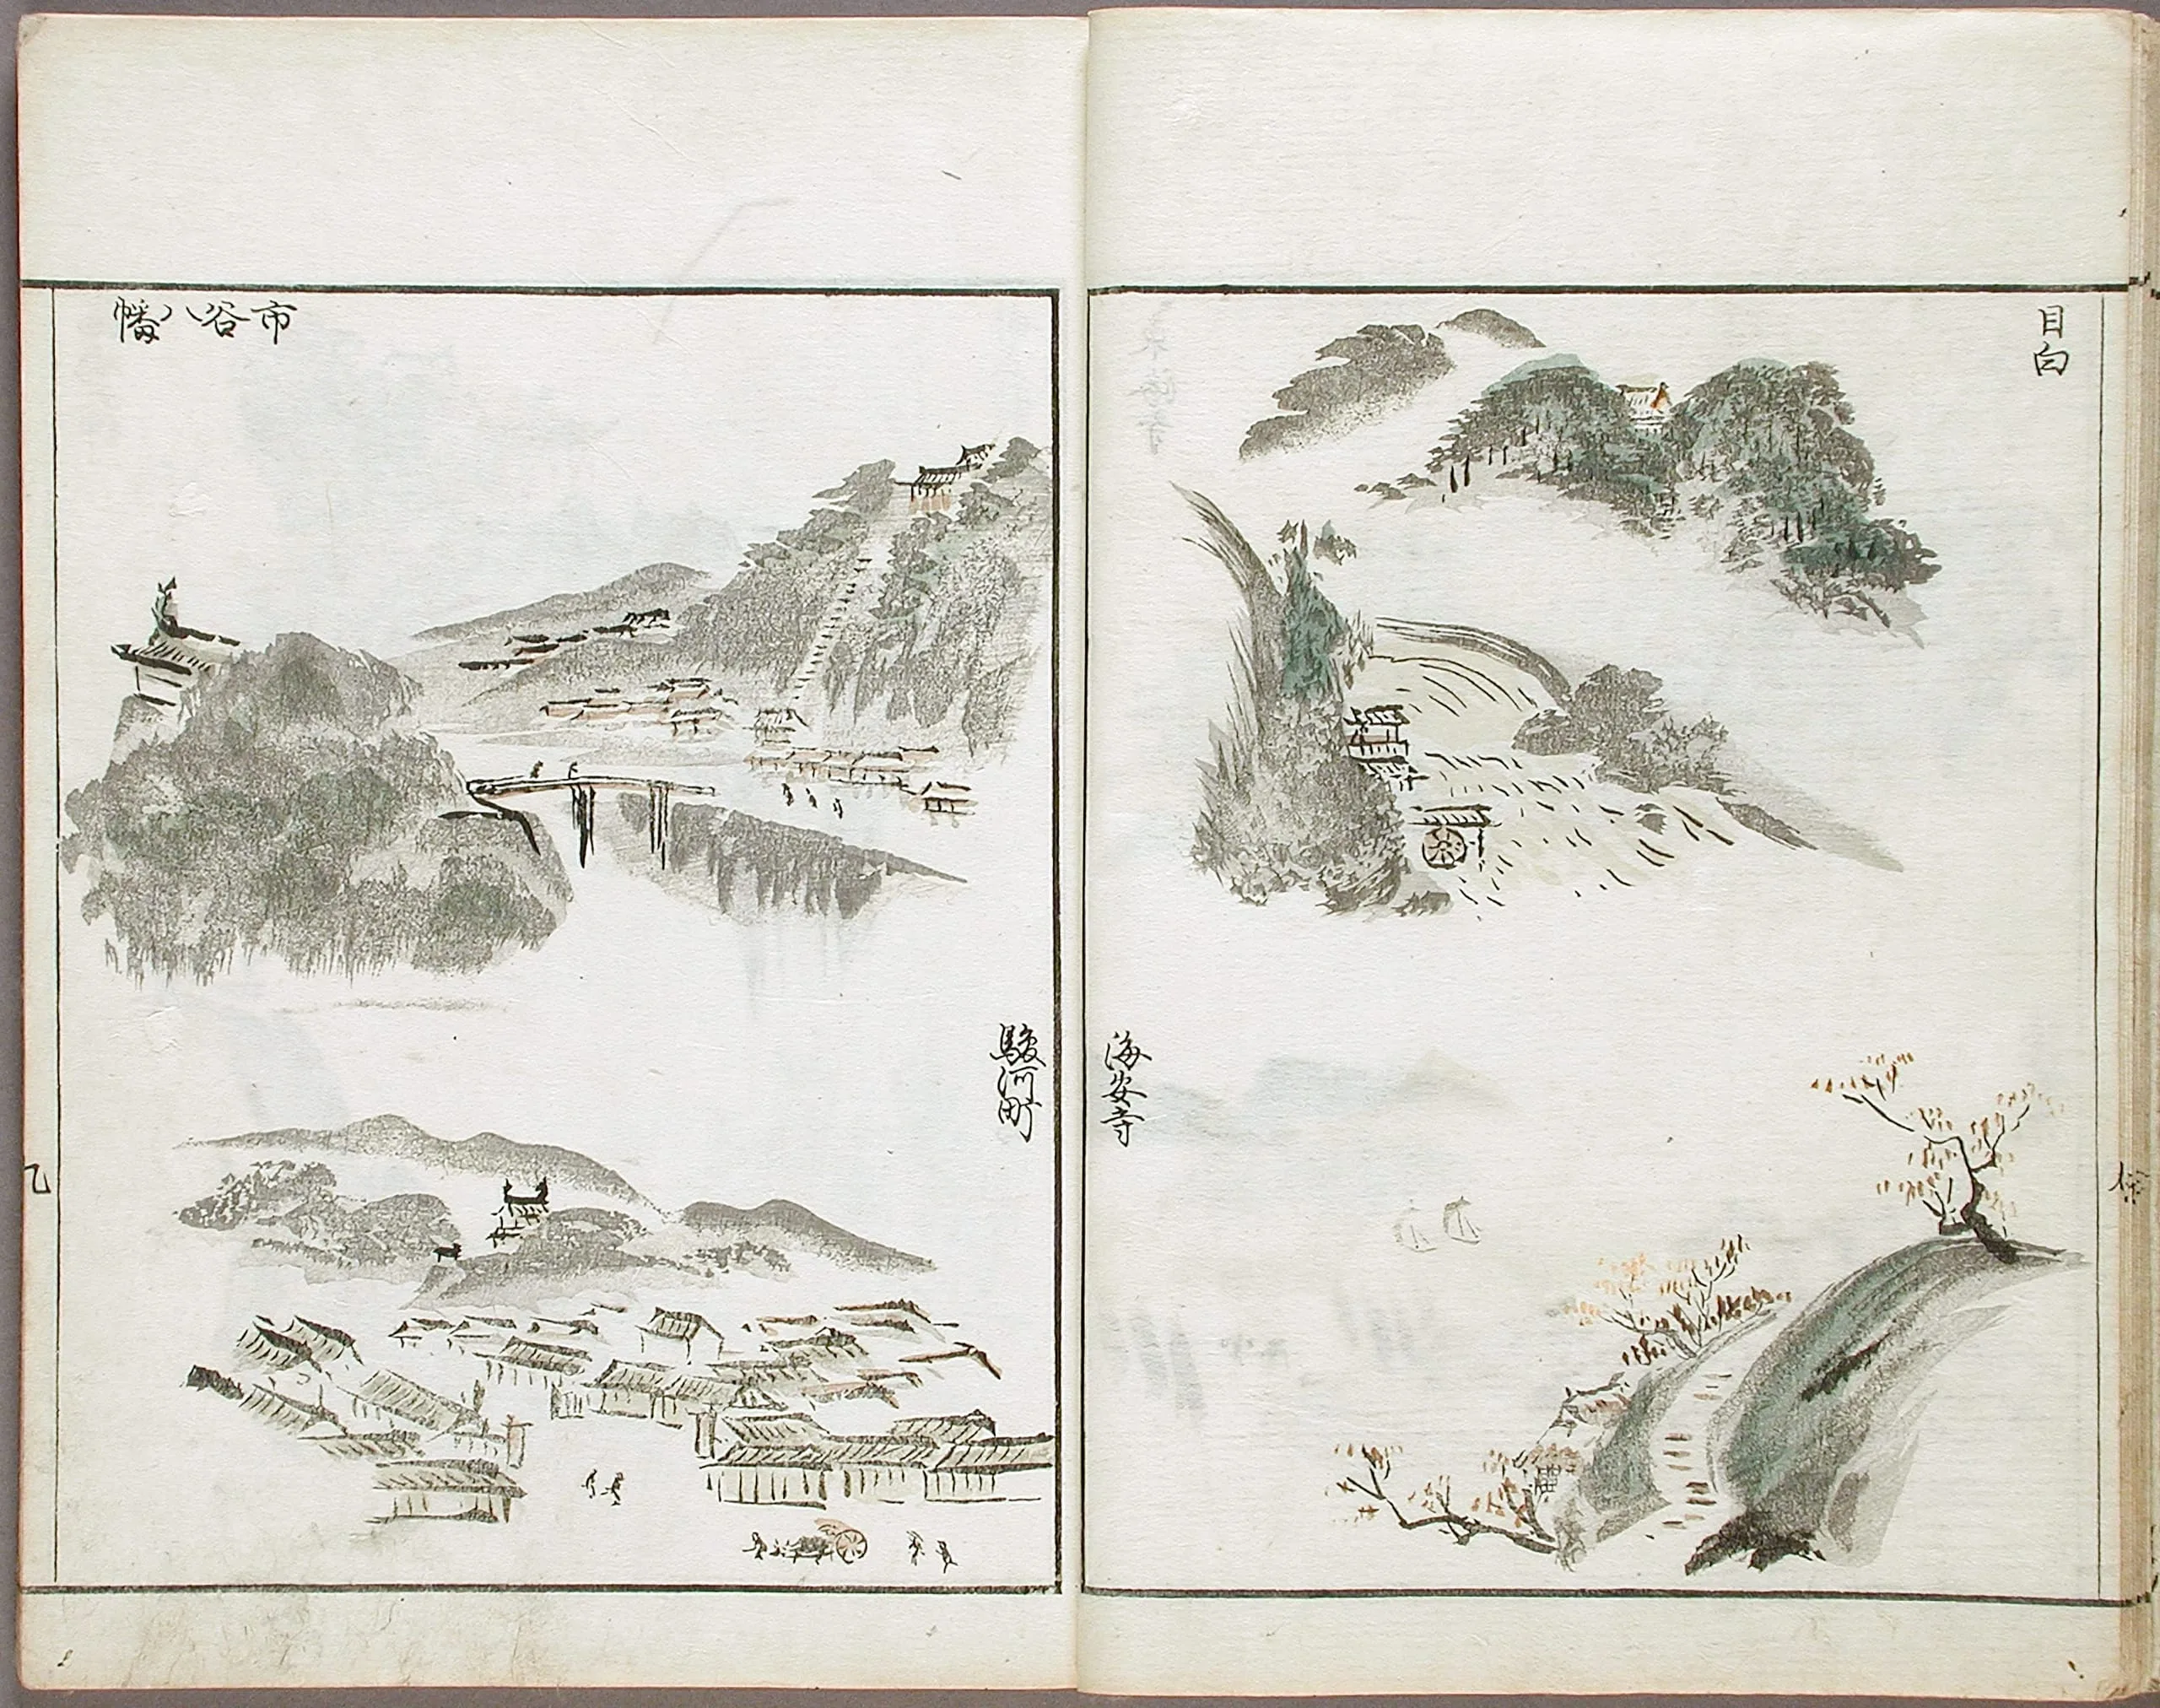 目白
海安寺
市谷八幡
駿河町